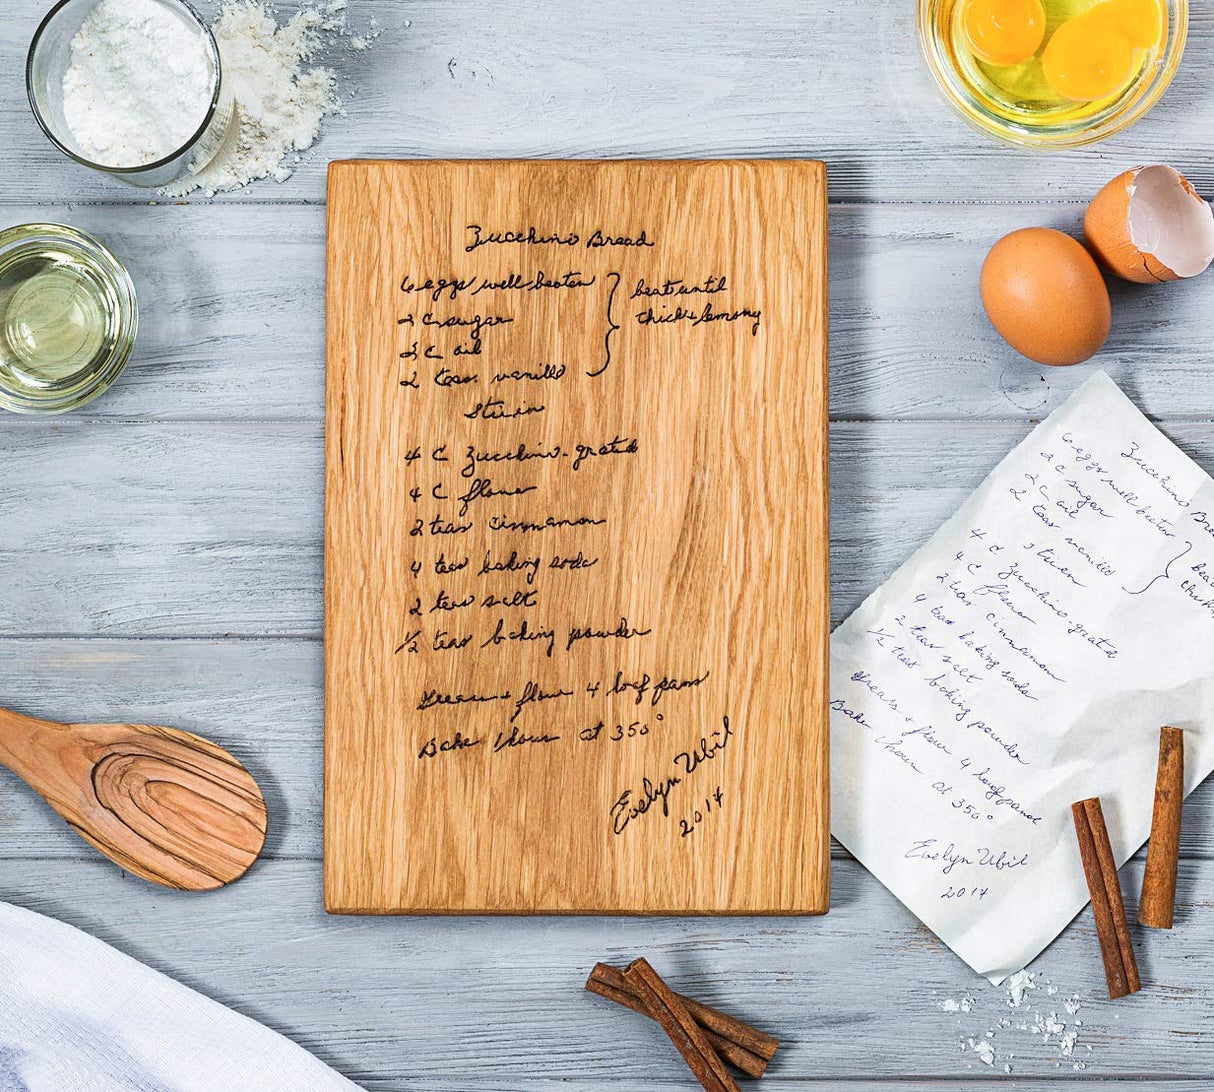 Zucchini Bread
6 eggs well beaten } beat until
2 C sugar thick & lemony
2 C oil
2 teas vanilla
Stir in
4 C Zucchini-grated
4 C flour
2 teas cinnamon
4 teas baking soda
2 teas salt
1/2 teas baking powder
Grease + flour 4 loaf pans
Bake 1 hour at 350°
Evelyn Ubil
2014
Zucchini
6 eggs well beaten }
2 C sugar
2 C oil
2 teas vanilla
stir in
4 C Zucchini-grated
4 C flour
2 teas cinnamon
4 teas baking soda
2 teas salt
1/2 teas baking powder
Grease + flour 4 loaf pans
Bake 1 hour at 350°
Evelyn Ubil
2014